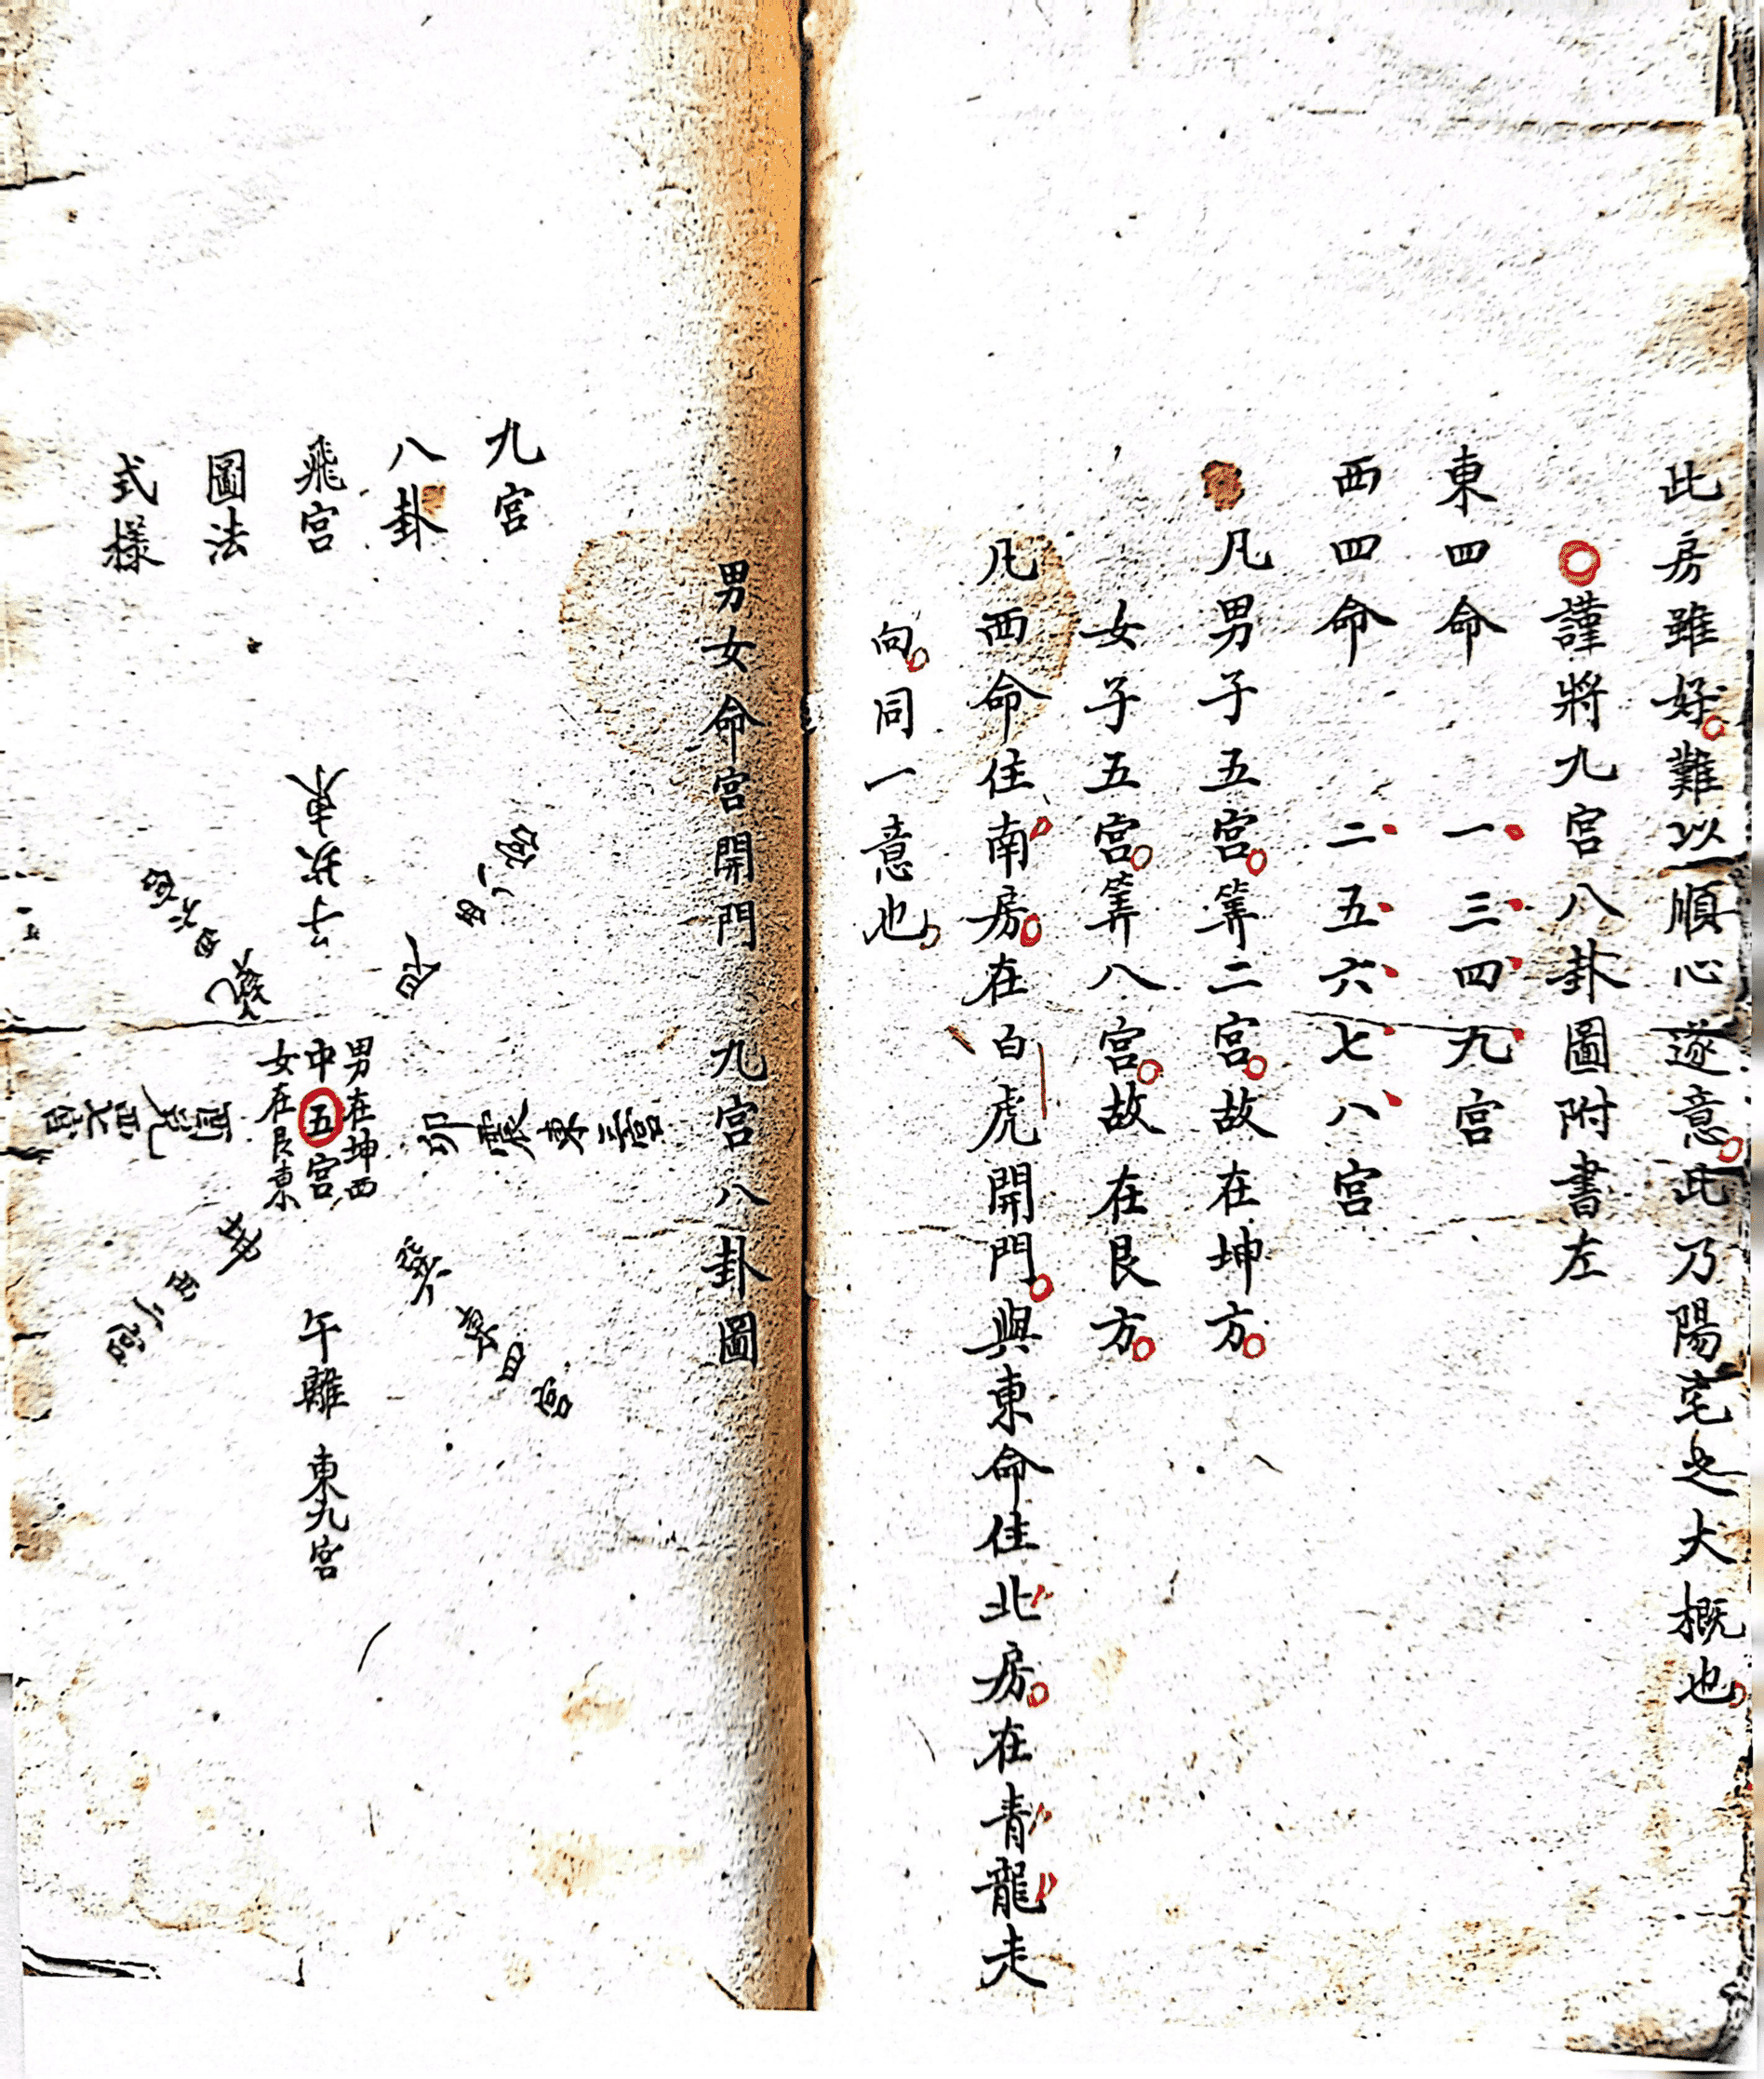 此房雖好。難以順心遂意。此乃陽宅之大概也。
○謹將九宮八卦圖附書左
東四命 一、三、四、九、宮
西四命 二、五、六、七、八、宮
凡男子五宮。筭二宮。故在坤方。
女子五宮。筭八宮。故在艮方。
凡西命住南房。在白虎開門。與東命住北房。在青龍走
向。同一意也。
男女命宮開門 九宮八卦圖
九宮
八卦
飛宮
圖法
式樣
男在坤西
中五宮
女在艮東
午離 東九宮
卯震東三宮
巽東四宮
艮西八宮
子坎東
乾西六宮
兌西七宮
西二宮